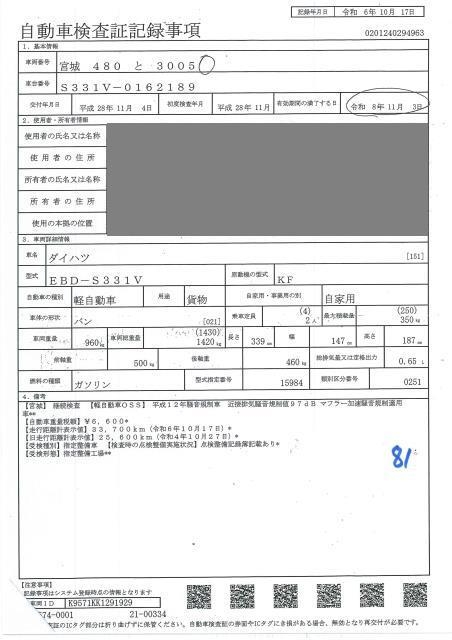 記録年月日 令和 6年10月17日
自動車検査証記録事項 0201240294963
1.基本情報
車両番号 宮城 480 と 3005
車台番号 S331V-0162189
交付年月日 平成28年11月 4日 初度検査年月 平成28年11月 有効期間の満了する日 令和 8年11月 3日
2.使用者・所有者情報
使用者の氏名又は名称
使用者の住所
所有者の氏名又は名称
所有者の住所
使用の本拠の位置
3.車両詳細情報
車名 ダイハツ [151]
型式 EBD-S331V 原動機の型式 KF
自動車の種別 軽自動車 用途 貨物 自家用・事業用の別 自家用
車体の形状 バン [021] 乗車定員 (4) 2人 最大積載量 (250) 350kg
車両重量 960kg 車両総重量 (1430) 1420kg 長さ 339cm 幅 147cm 高さ 187cm
前軸重 500kg 後軸重 460kg 総排気量又は定格出力 0.65L
燃料の種類 ガソリン 型式指定番号 15984 類別区分番号 0251
4.備考
【宮城】 継続検査 【軽自動車OSS】 平成12年騒音規制車 近接排気騒音規制値97dB マフラー加速騒音規制適用
車**
【自動車重量税額】¥6,600*
【走行距離計表示値】33,700km(令和6年10月17日)*
【旧走行距離計表示値】25,600km(令和4年10月27日)*
【受検種別】指定整備車 【検査時の点検整備実施状況】点検整備記録簿記載あり*
【受検形態】指定整備工場**
81
【注意事項】
記録事項はシステム登録時点の情報となります
車両ID K9571KK1291929
574-0001 21-00334
証のICタグ部分は折り曲げずに保管ください。自動車検査証の券面やICタグにき損がある場合、無効となり再交付が必要です。